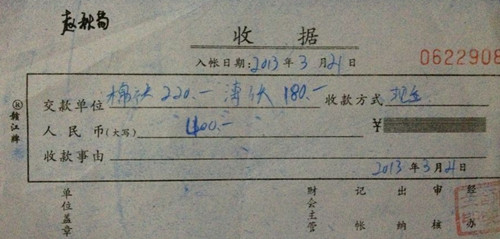 赵秋菊
收据
入帐日期:2013年3月21日
0622908
交款单位 棉伏 220.— 薄伏 180.— 收款方式 现金
人民币(大写) 400.— ¥
收款事由
2013年3月21日
赣江牌
单位盖章 财会主管 记帐 出纳 审核 经办